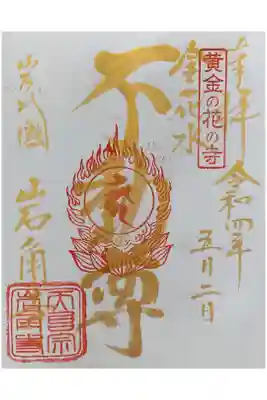 奉拝
令和四年
五月二日
黄金の花の寺
金花水
不動尊
岩代國
岩角
天台宗